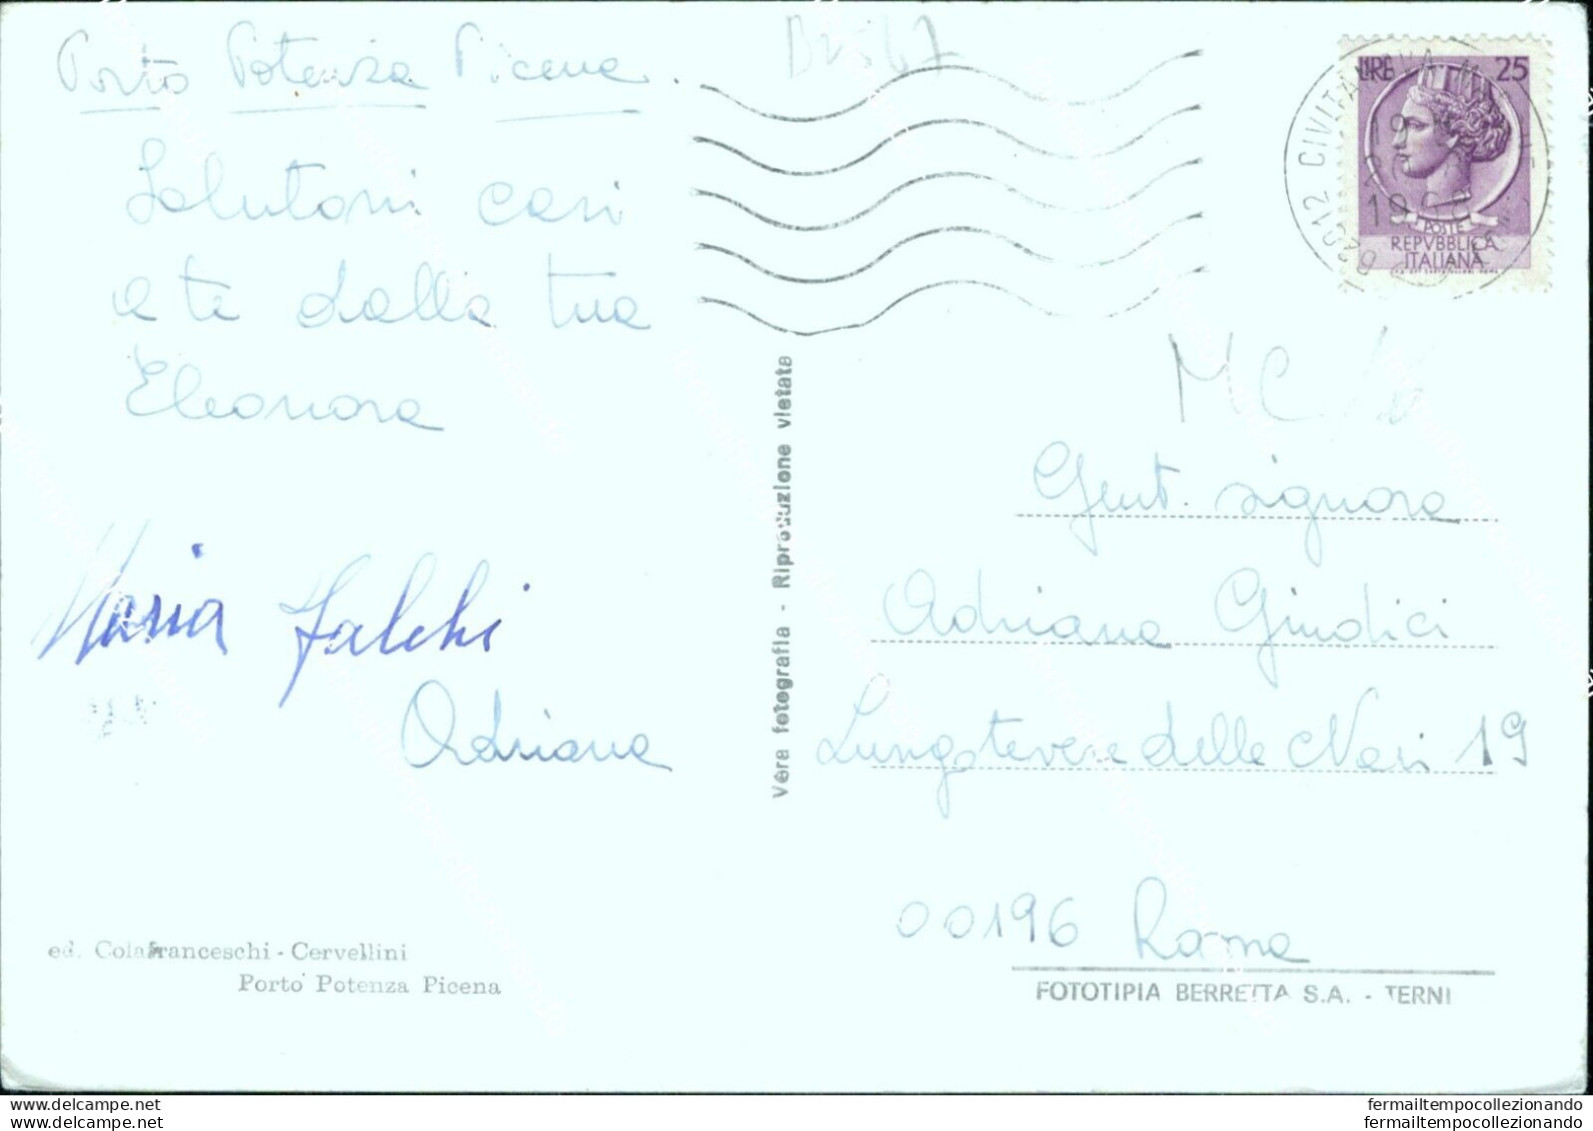 Porto Potenza Picena
Salutoni cari
a te dalla tua
Eleonora
Maria Falchi
Adriana
ed. Colafranceschi - Cervellini
Porto Potenza Picena
Vera fotografia - Riproduzione vietata
LIRE 25
POSTE
REPVBBLICA
ITALIANA
62012 CIVITANOVA
19
MC
Gent. signora
Adriana Giudici
Lungotevere delle Navi 19
00196 Roma
FOTOTIPIA BERRETTA S.A. - TERNI
www.delcampe.net
fermailtempocollezionando
www.delcampe.net
fermailtempocollezionando